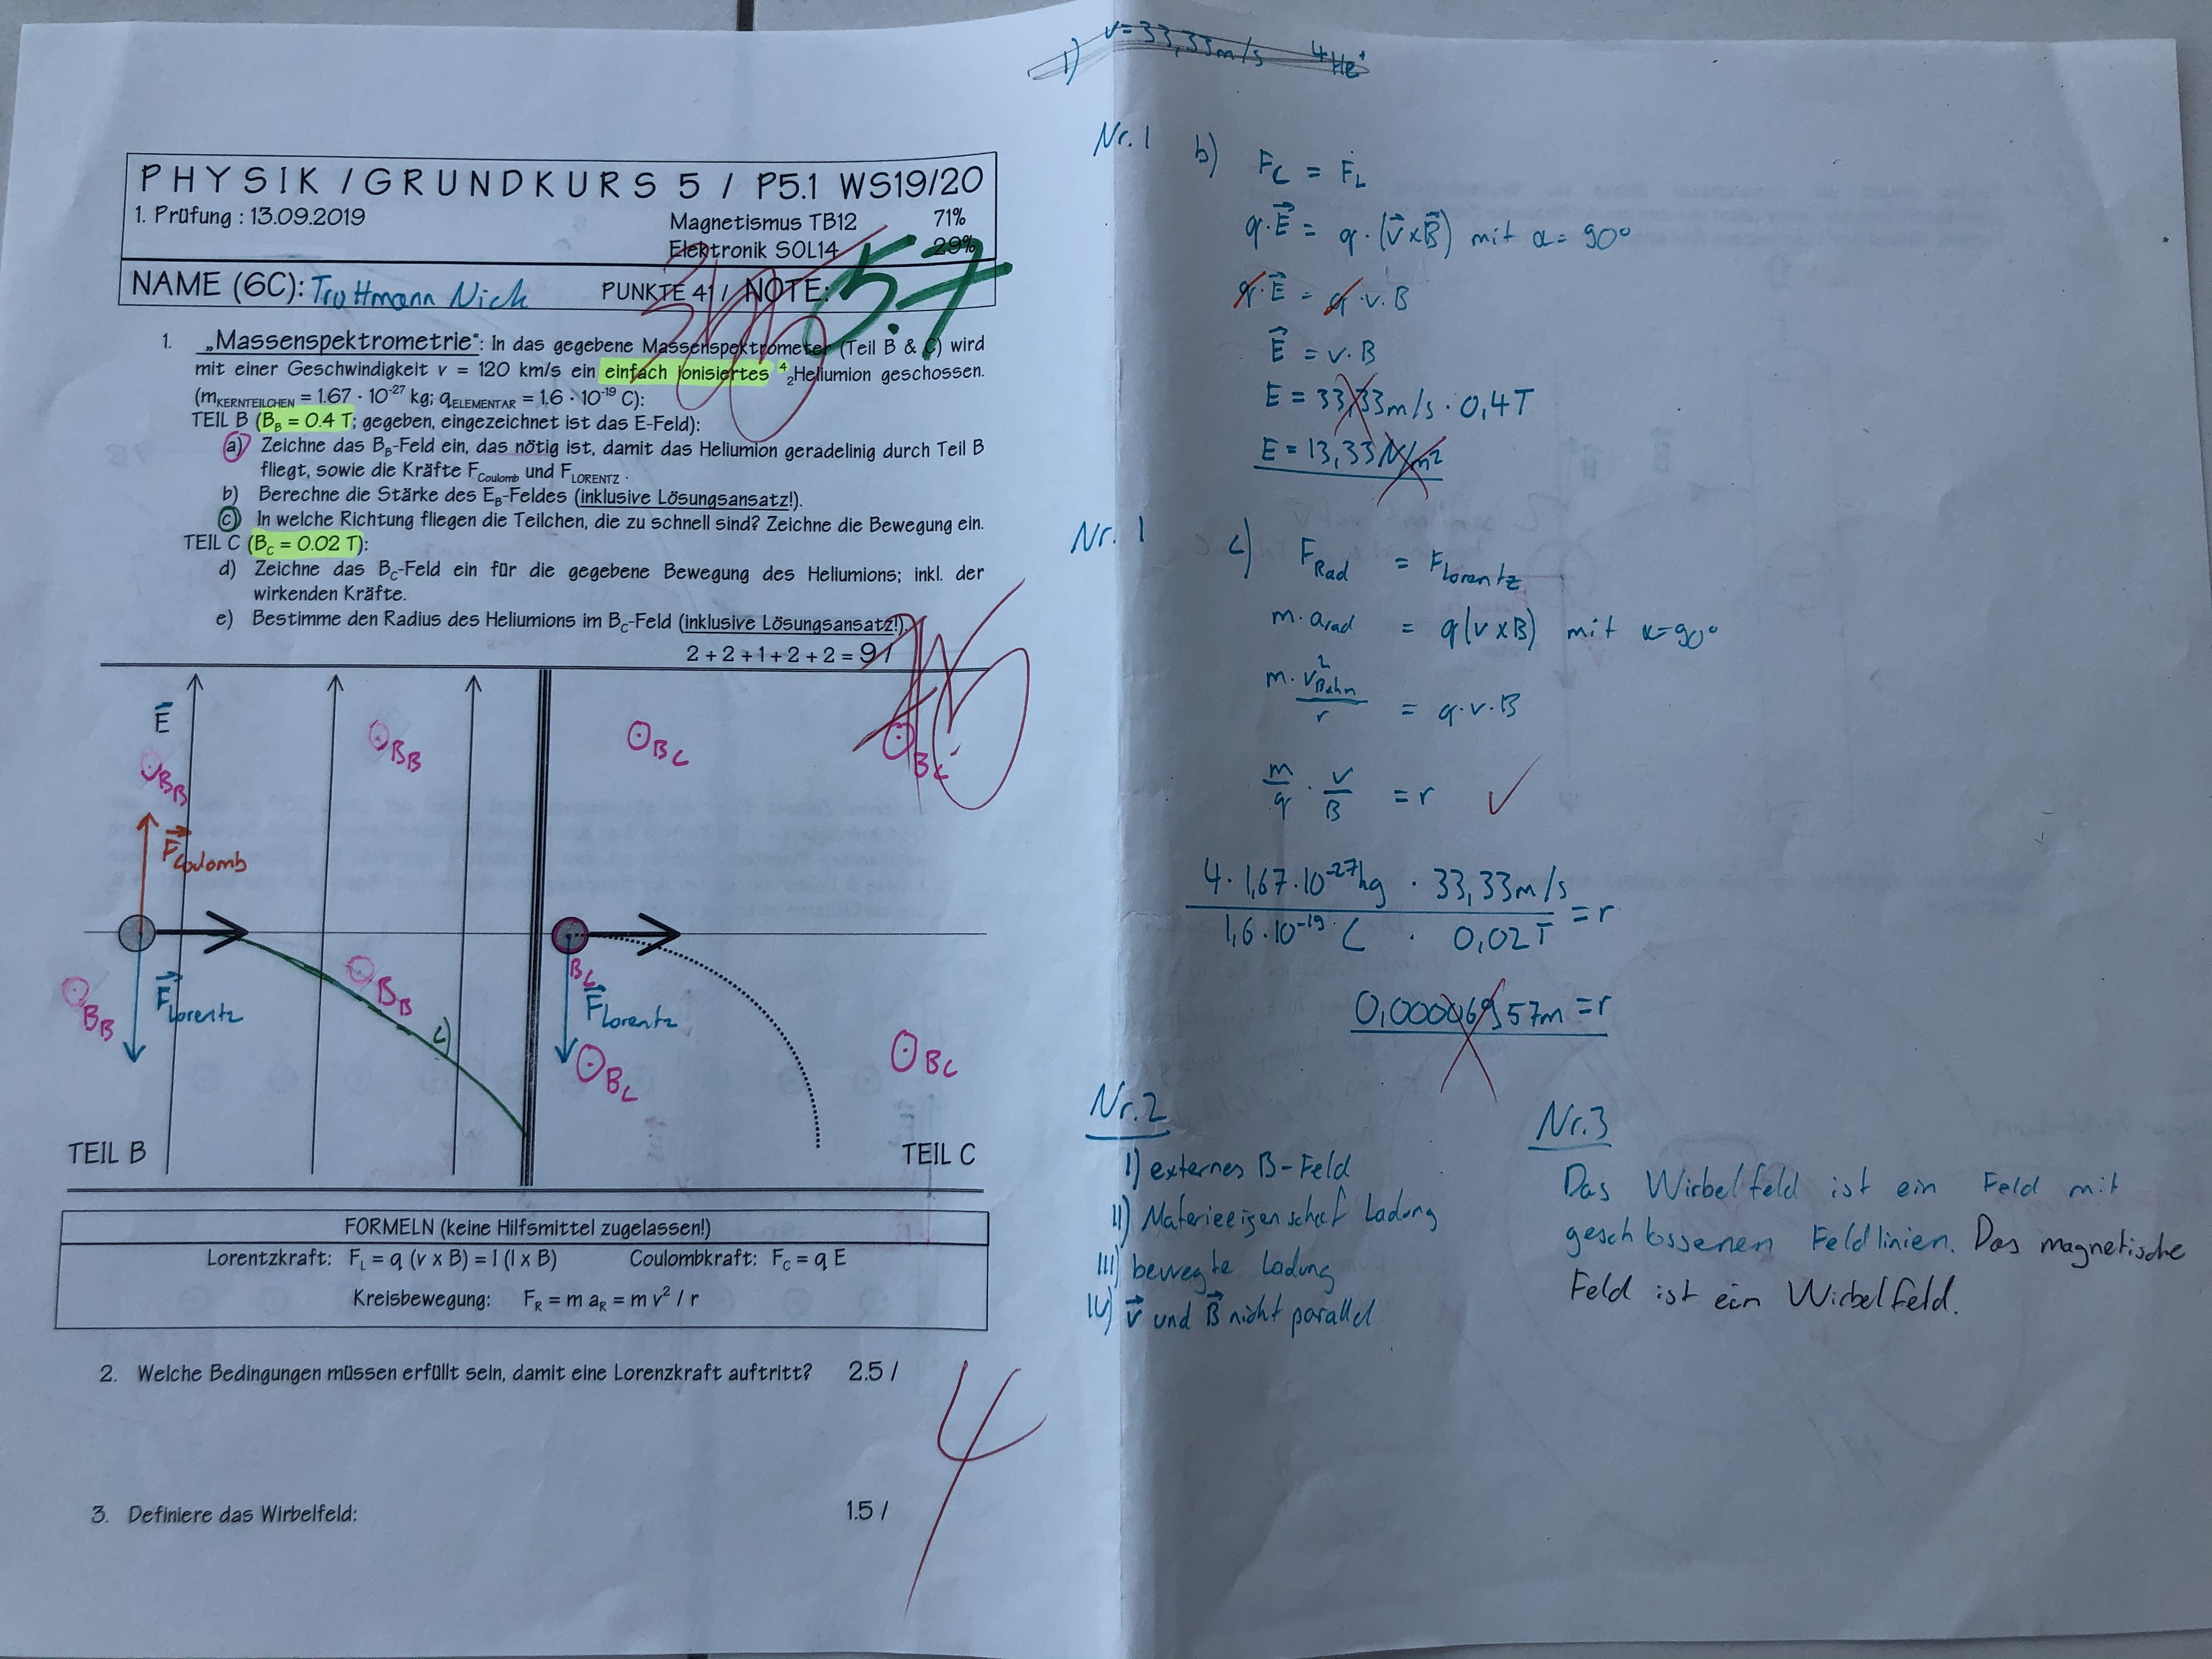 PHYSIK / GRUNDKURS 5 / P5.1 WS19/20
1. Prüfung : 13.09.2019
Magnetismus TB12 71%
Elektronik SOL14 29%
NAME (6C): Trottmann Nick PUNKTE 41 / NOTE: 5.7
1. „Massenspektrometrie“: In das gegebene Massenspektrometer (Teil B & C) wird
mit einer Geschwindigkeit v = 120 km/s ein einfach ionisiertes ⁴₂Heliumion geschossen.
(mKERNTEILCHEN = 1.67 · 10⁻²⁷ kg; qELEMENTAR = 1.6 · 10⁻¹⁹ C):
TEIL B (BB = 0.4 T; gegeben, eingezeichnet ist das E-Feld):
a) Zeichne das BB-Feld ein, das nötig ist, damit das Heliumion geradelinig durch Teil B
fliegt, sowie die Kräfte FCoulomb und FLORENTZ .
b) Berechne die Stärke des EB-Feldes (inklusive Lösungsansatz!).
c) In welche Richtung fliegen die Teilchen, die zu schnell sind? Zeichne die Bewegung ein.
TEIL C (BC = 0.02 T):
d) Zeichne das BC-Feld ein für die gegebene Bewegung des Heliumions; inkl. der
wirkenden Kräfte.
e) Bestimme den Radius des Heliumions im BC-Feld (inklusive Lösungsansatz!).
2 + 2 + 1 + 2 + 2 = 9 /
E
BB
BB
BC
BC
FCoulomb
FLorentz
BB
BB
c)
BC
FLorentz
BC
BC
TEIL B
TEIL C
FORMELN (keine Hilfsmittel zugelassen!)
Lorentzkraft: FL = q (v x B) = I (l x B) Coulombkraft: FC = q E
Kreisbewegung: FR = m aR = m v² / r
2. Welche Bedingungen müssen erfüllt sein, damit eine Lorenzkraft auftritt? 2.5 /
4
3. Definiere das Wirbelfeld: 1.5 /
1) v = 33,33 m/s ⁴He⁺
Nr. 1 b) FC = FL
q · E = q · (v x B) mit α = 90°
q · E = q · v · B
E = v · B
E = 33,33 m/s · 0,4 T
E = 13,33 N/m²
Nr. 1 c) FRad = FLorentz
m · arad = q (v x B) mit α = 90°
m · v²Bahn / r = q · v · B
m/q · v/B = r ✓
4 · 1,67 · 10⁻²⁷ kg · 33,33 m/s
1,6 · 10⁻¹⁹ C · 0,02 T = r
0,00006957 m = r
Nr. 2
I) externes B-Feld
II) Materieeigenschaft Ladung
III) bewegte Ladung
IV) v und B nicht parallel
Nr. 3
Das Wirbelfeld ist ein Feld mit
geschlossenen Feldlinien. Das magnetische
Feld ist ein Wirbelfeld.